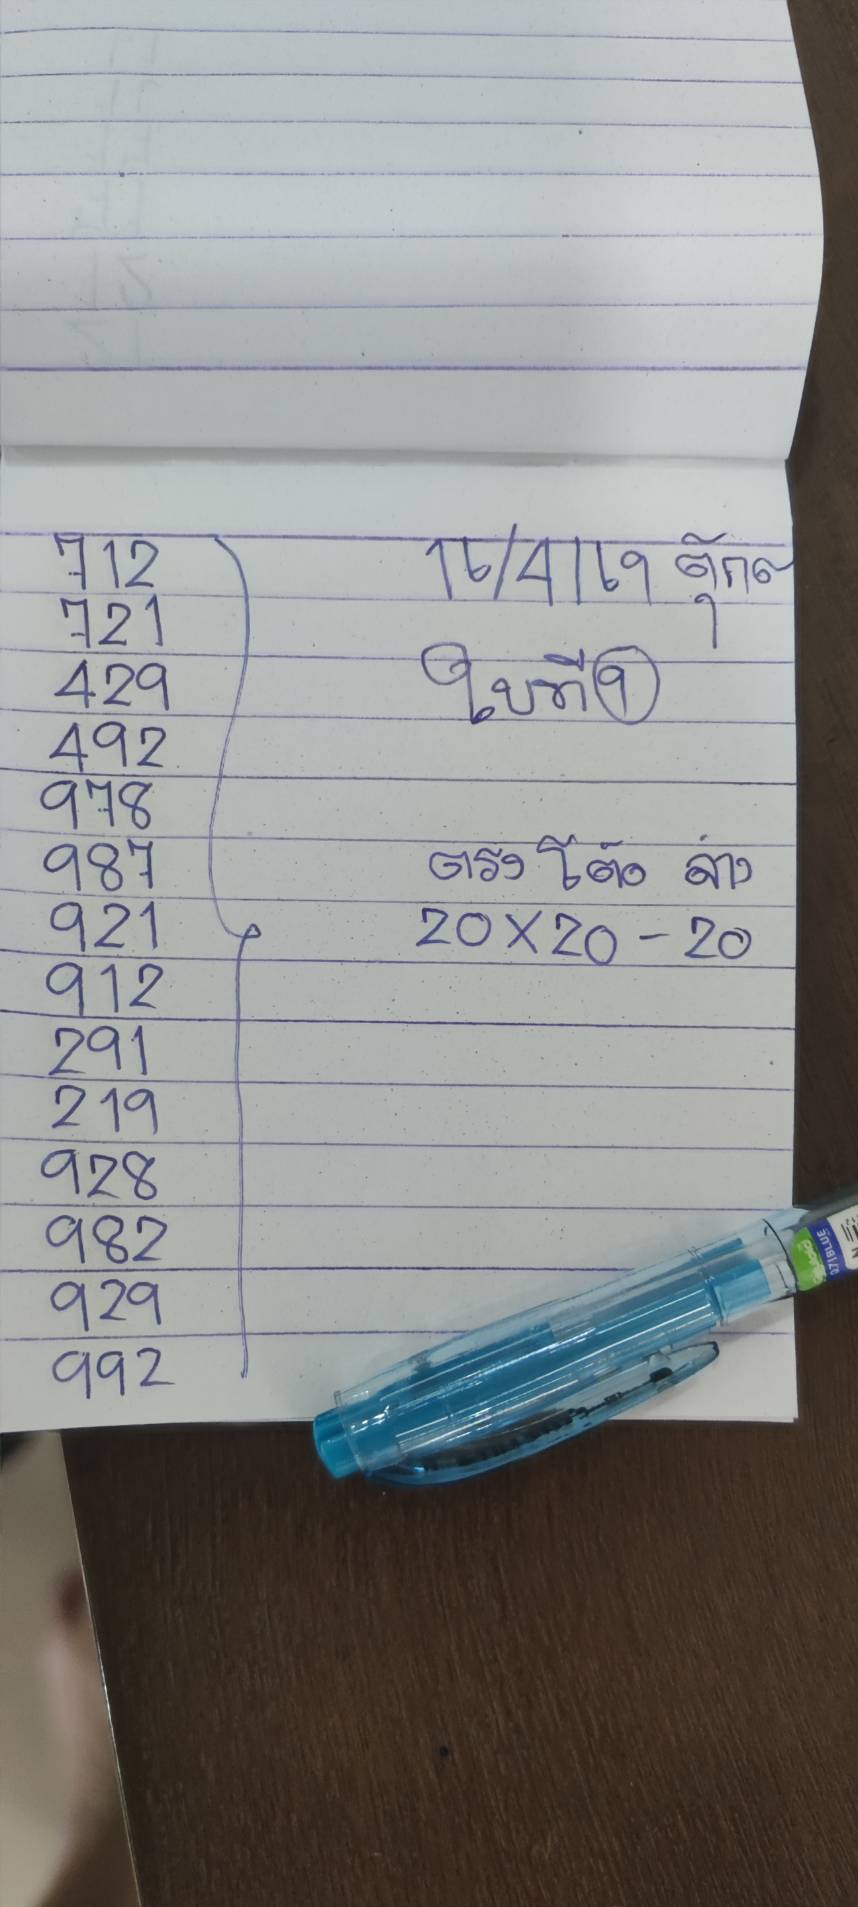 712
721
429
492
978
987
921
912
291
219
928
982
929
992
16/4/69
ใบที่ 9
ตรง โต๊ด ล่าง
20×20-20
071BLUE